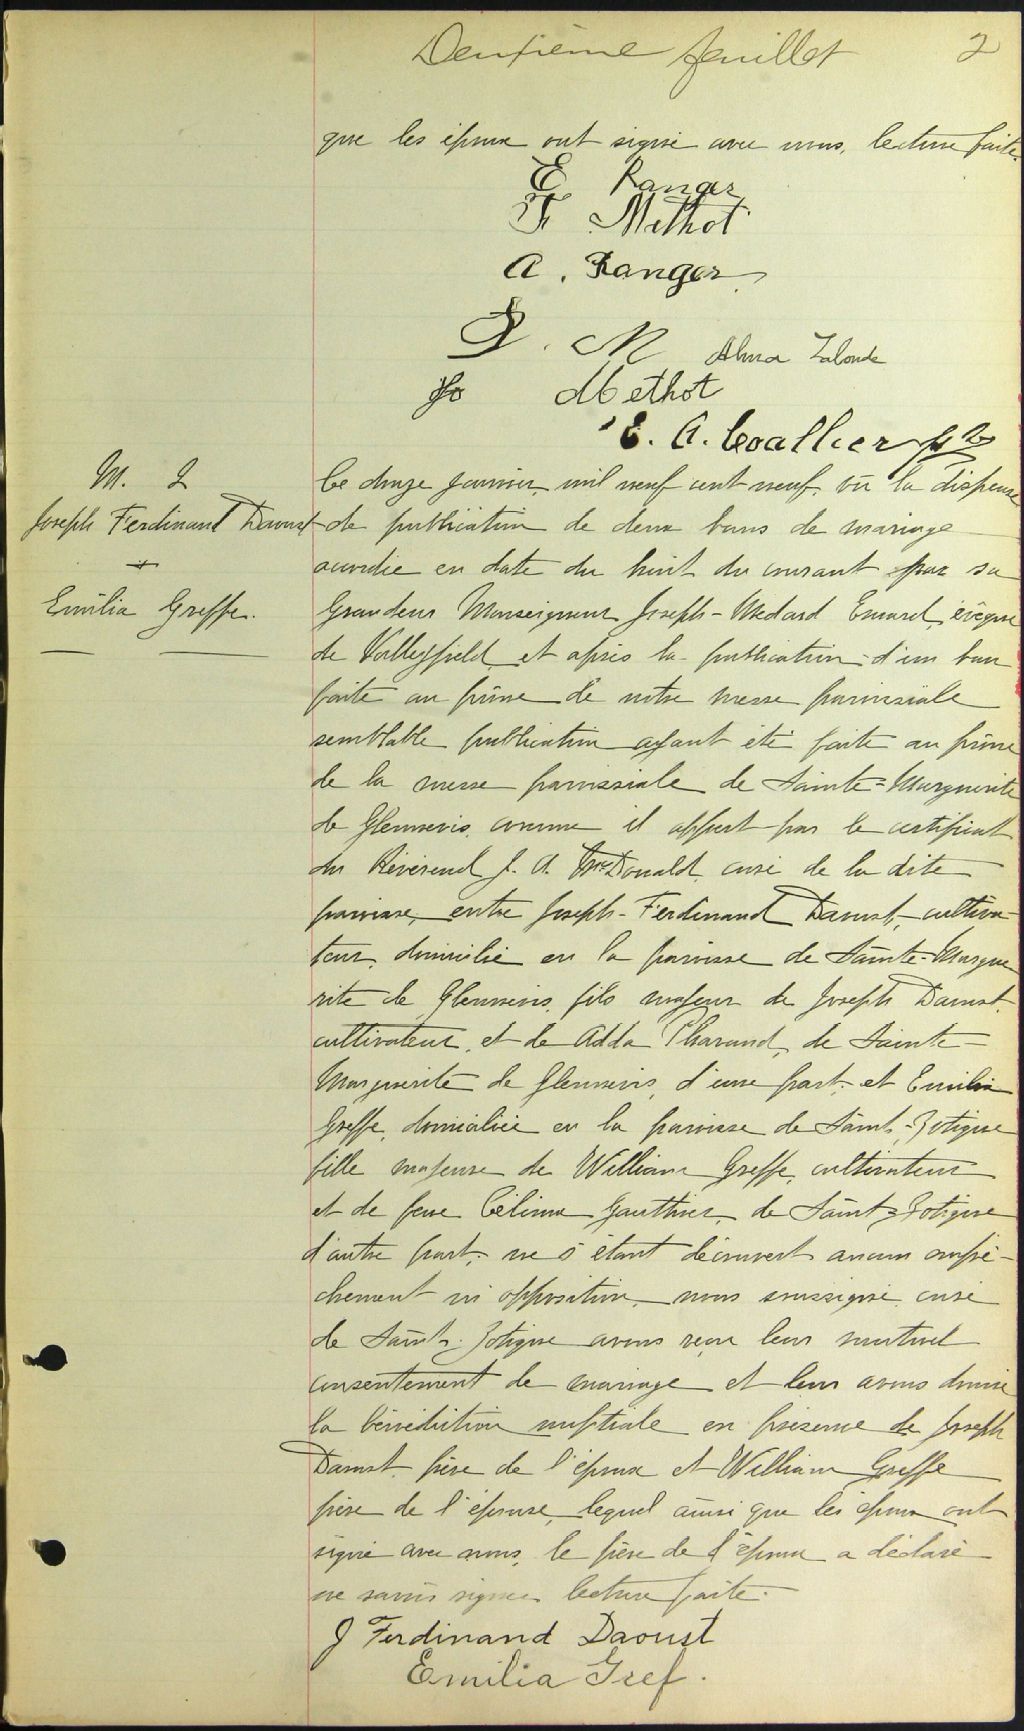 Deuxième feuillet 2
que les époux ont signé avec nous, lecture faite.
E Ranger
F Methot
A. Ranger
P. M Alma Lalonde
Jo Methot
E. A. Coallier ptre
M. 2
Joseph Ferdinand Daoust
+
Emilia Greffe.
Le douze janvier, mil neuf cent neuf, vu la dispense
de publication de deux bans de mariage
accordée en date du huit du courant par sa
Grandeur Monseigneur Joseph-Médard Emard, évêque
de Valleyfield, et après la publication d'un ban
faite au prône de notre messe paroissiale
semblable publication ayant été faite au prône
de la messe paroissiale de Sainte-Marguerite
de Glennevis, comme il appert par le certificat
du Révérend J. A. McDonald, curé de la dite
paroisse, entre Joseph-Ferdinand Daoust, cultiva-
teur, domicilié en la paroisse de Sainte-Margue
rite de Glennevis, fils majeur de Joseph Daoust,
cultivateur, et de Adda Pharand, de Sainte-
Marguerite de Glennevis, d'une part; et Emilia
Greffe, domiciliée en la paroisse de Saint-Zotique
fille majeure de William Greffe, cultivateur
et de feue Célima Gauthier, de Saint-Zotique
d'autre part; ne s'étant découvert aucun empê-
chement ni opposition, nous soussigné, curé
de Saint-Zotique avons reçu leur mutuel
consentement de mariage et leur avons donné
la bénédiction nuptiale en présence de Joseph
Daoust, père de l'époux et William Greffe
père de l'épouse, lequel ainsi que les époux ont
signé avec nous, le père de l'époux a déclaré
ne savoir signer lecture faite.
J Ferdinand Daoust
Emilia Gref.